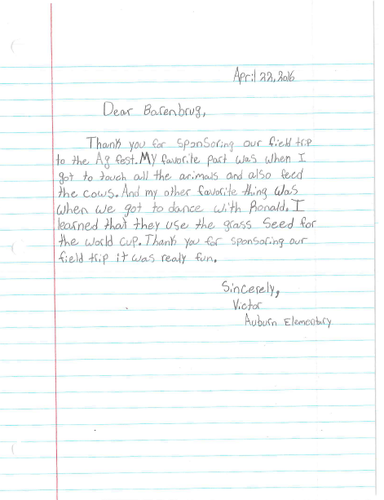 April 22, 2016
Dear Barenbrug,
Thank you for sponsoring our field trip
to the Ag fest. My favorite part was when I
got to touch all the animals and also feed
the cows. And my other favorite thing was
when we got to dance with Ronald. I
learned that they use the grass seed for
the world cup. Thank you for sponsoring our
field trip it was realy fun.
Sincerely,
Victor
Auburn Elementary